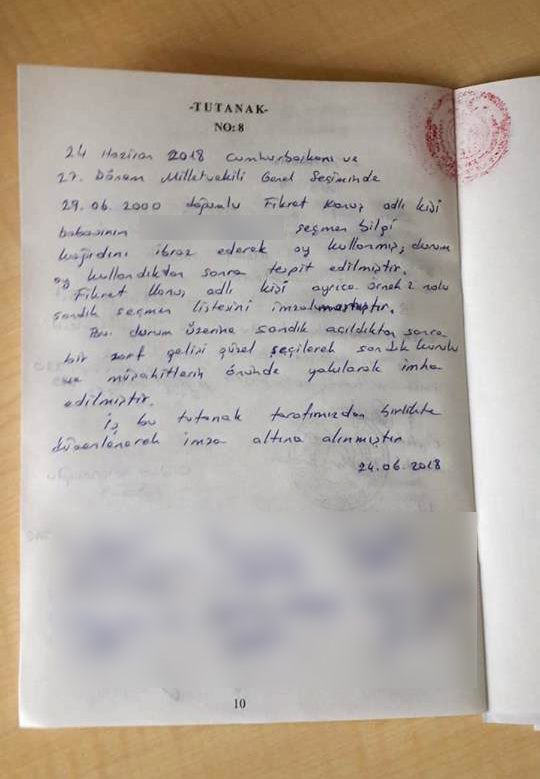 -TUTANAK-
NO: 8
24 Haziran 2018 Cumhurbaşkanı ve
27. Dönem Milletvekili Genel Seçiminde
29.06.2000 doğumlu Fikret Konuş adlı kişi
babasının seçmen bilgi
kağıdını ibraz ederek oy kullanmış, durum
oy kullandıktan sonra tespit edilmiştir.
Fikret Konuş adlı kişi ayrıca örnek 2 nolu
sandık seçmen listesini imzalamamıştır.
Bu durum üzerine sandık açıldıktan sonra
bir zarf gelişi güzel seçilerek sandık kurulu
ve müşahitlerin önünde yakılarak imha
edilmiştir.
İş bu tutanak tarafımızdan birlikte
düzenlenerek imza altına alınmıştır
24.06.2018
10